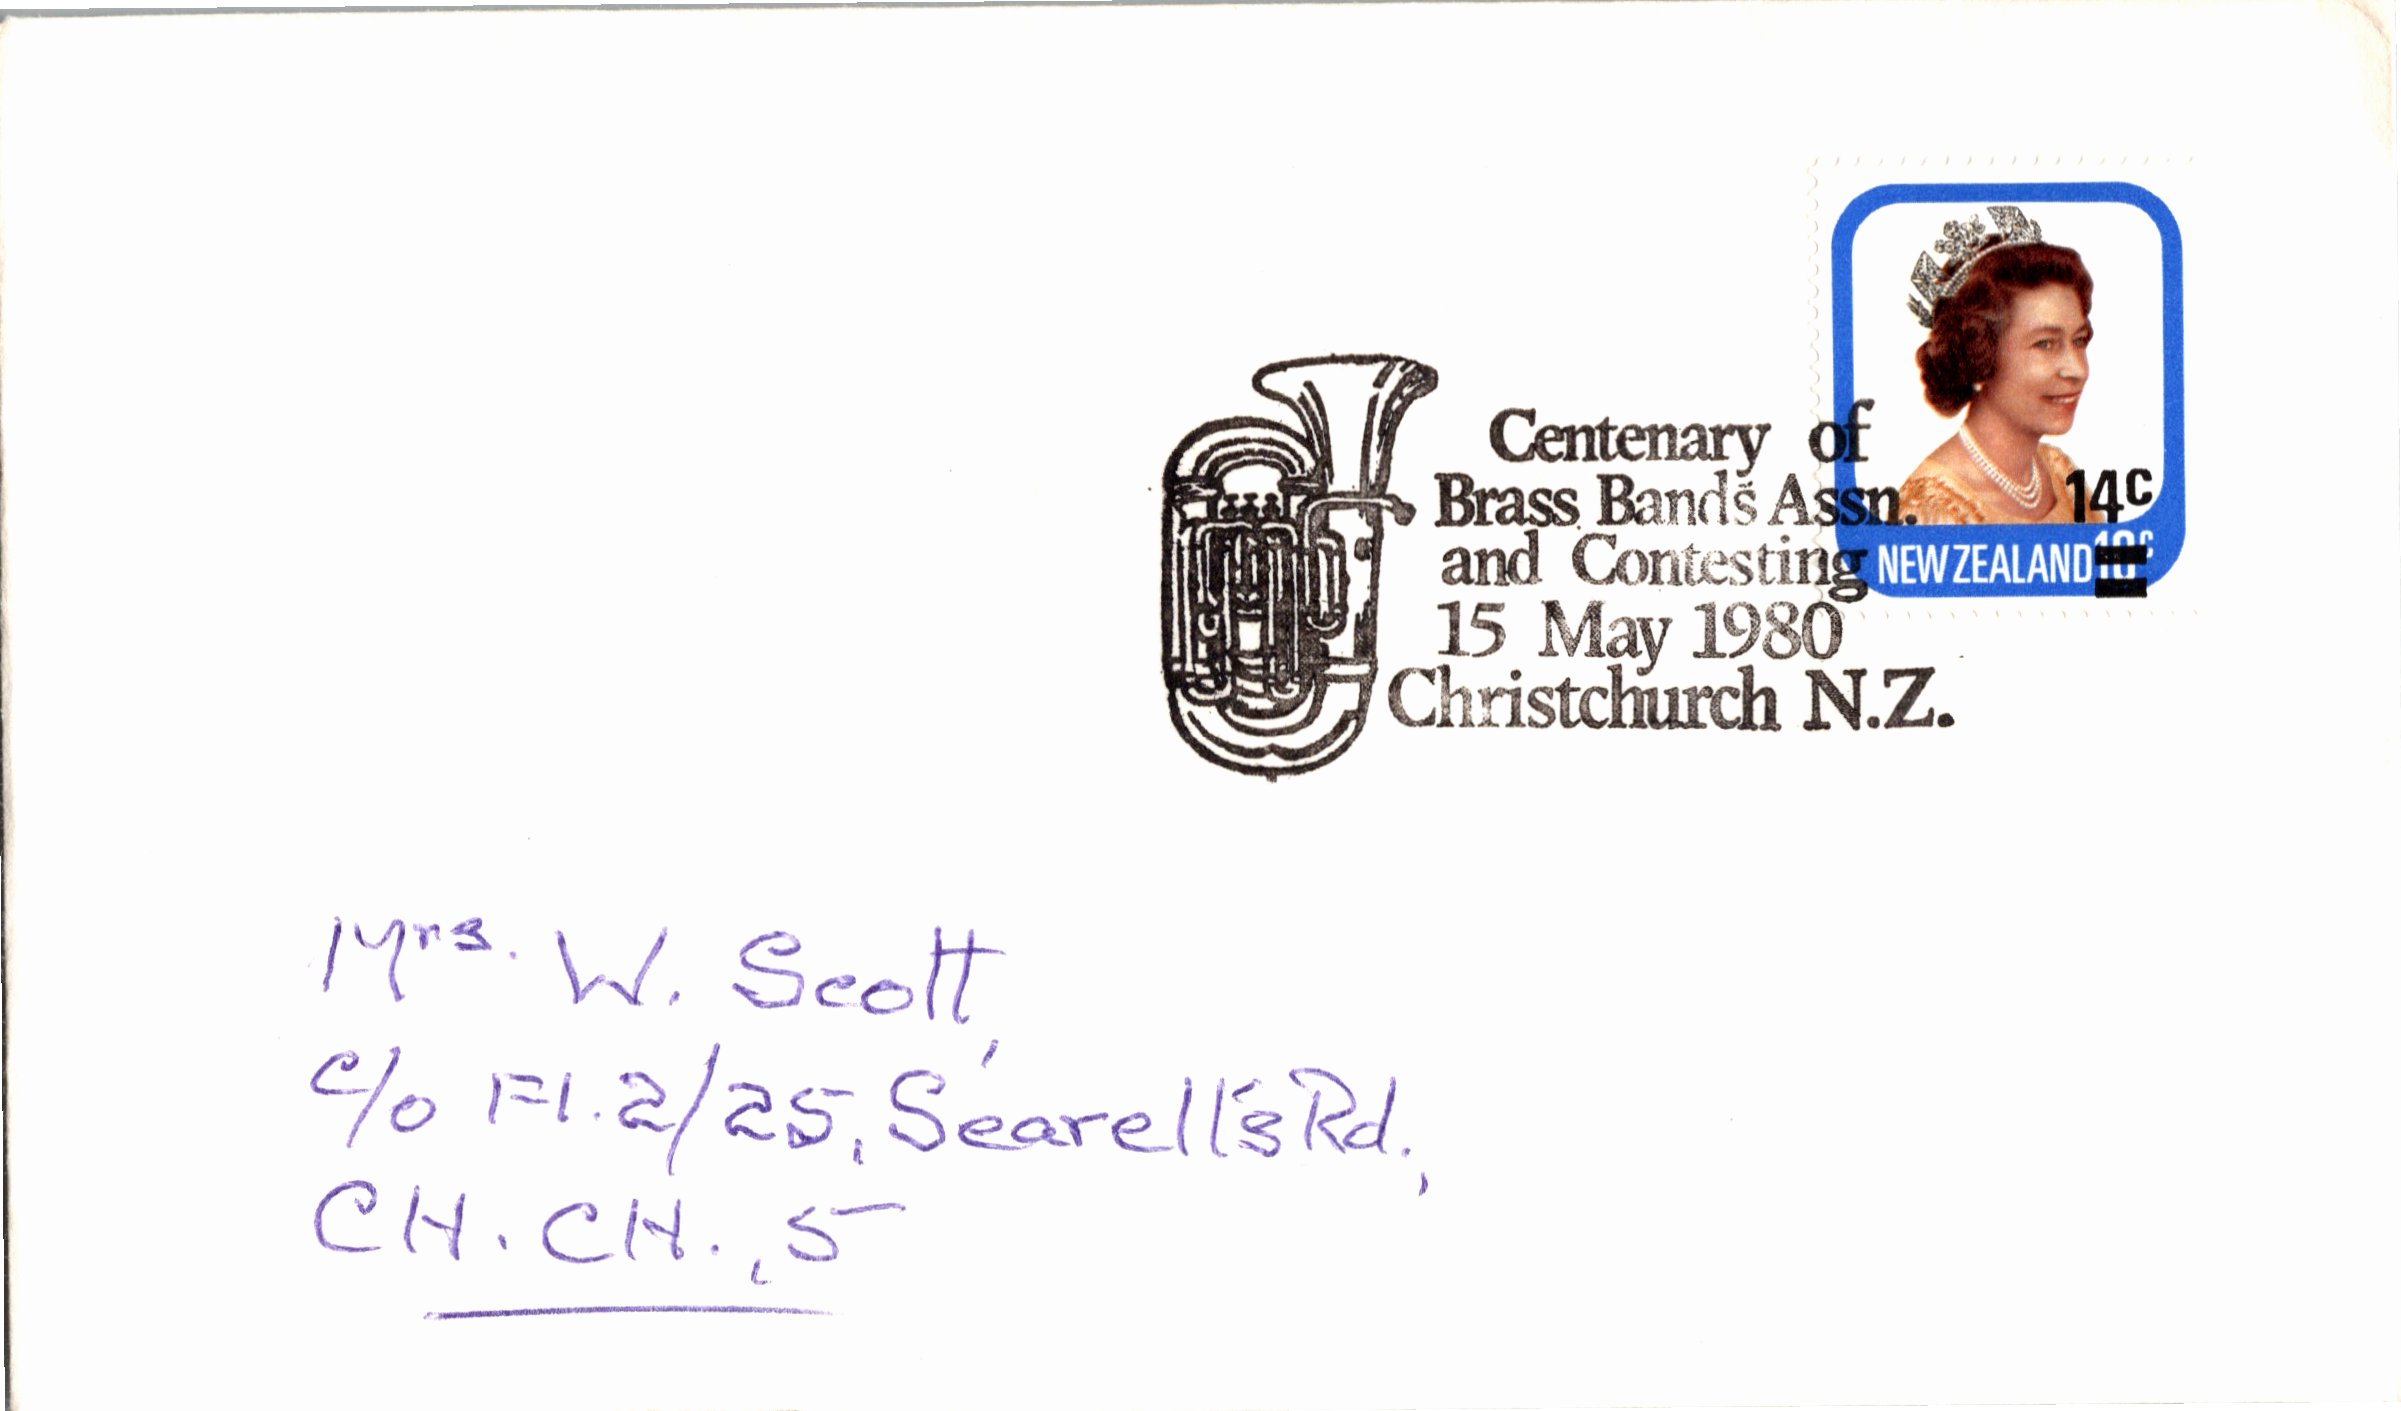 Centenary of
Brass Bands Assn.
and Contesting
15 May 1980
Christchurch N.Z.
14c
NEW ZEALAND 10c
Mrs. W. Scott,
c/o Fl. 2/25, Searell's Rd.,
CH. CH., 5